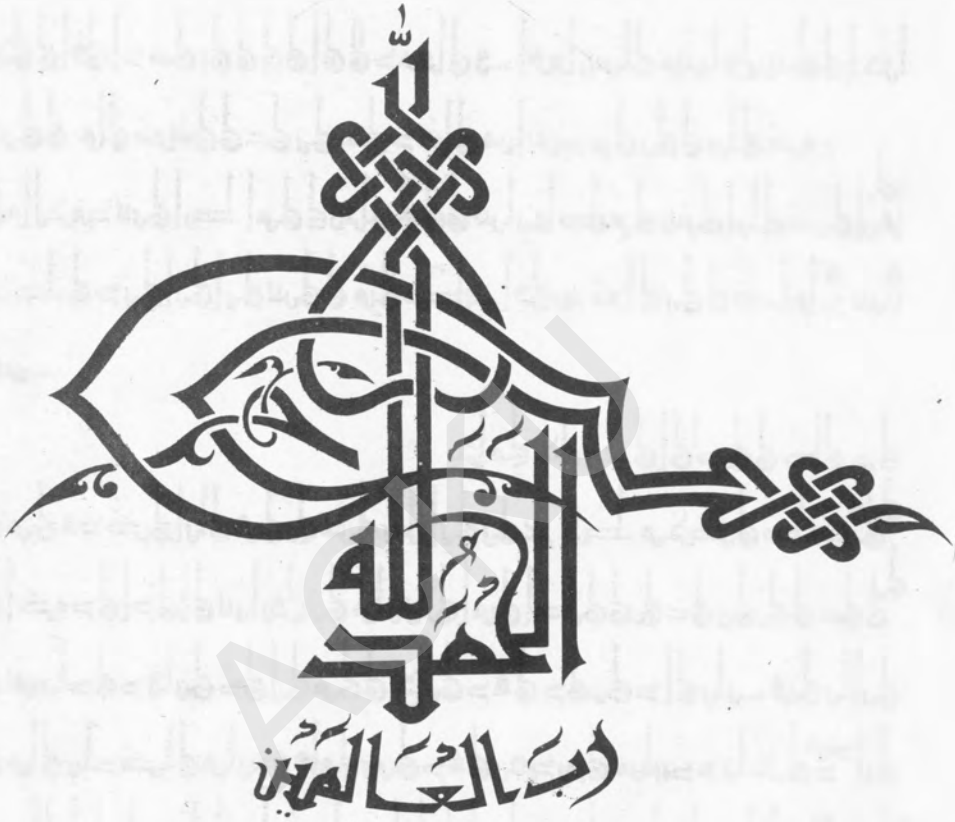 الحمد
لله
رب العالمين
ACKU